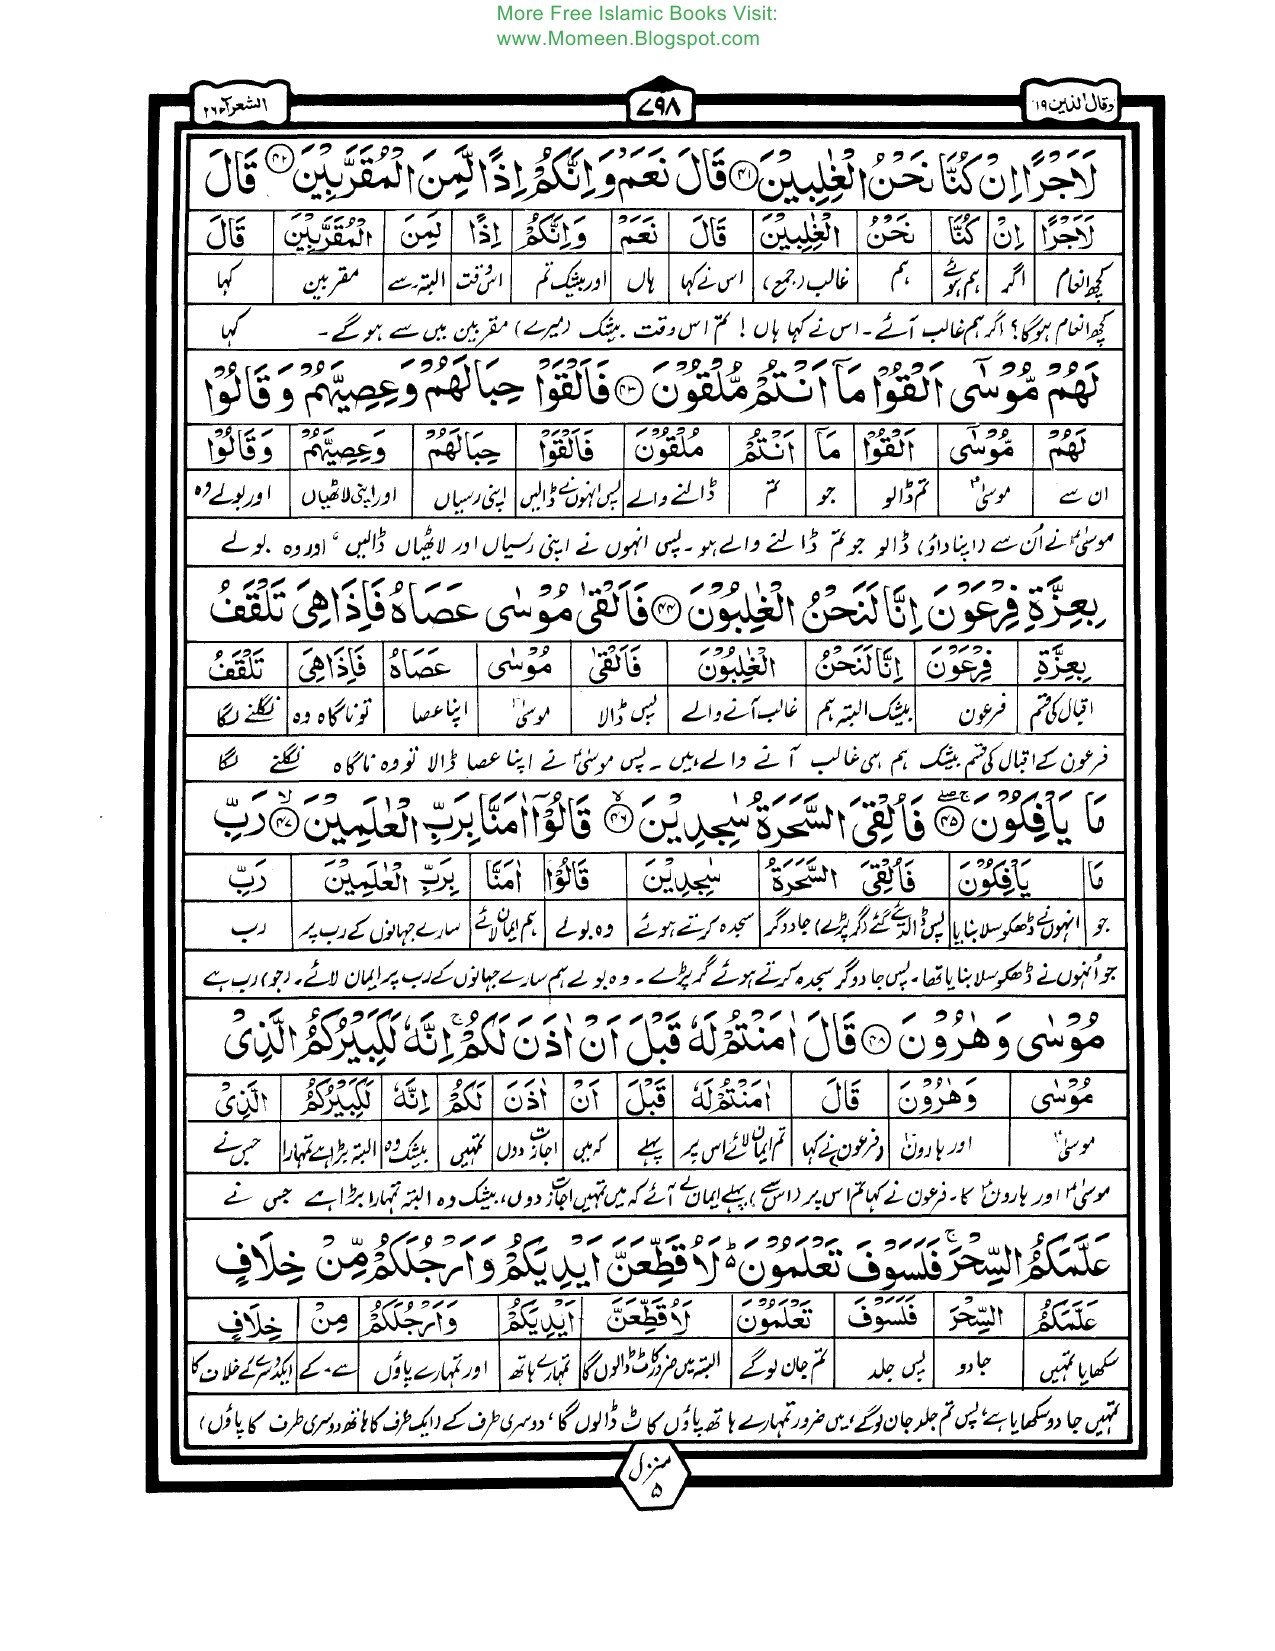 More Free Islamic Books Visit:
www.Momeen.Blogspot.com
وقال الذین ۱۹
۷۹۸
الشعرآء ۲۶
لَاَجْرًا اِنْ كُنَّا نَحْنُ الْغٰلِبِیْنَ ۴۱ قَالَ نَعَمْ وَاِنَّكُمْ اِذًا لَّمِنَ الْمُقَرَّبِیْنَ ۴۲ قَالَ
لَاَجْرًا اِنْ كُنَّا نَحْنُ الْغٰلِبِیْنَ قَالَ نَعَمْ وَاِنَّكُمْ اِذًا لَمِنَ الْمُقَرَّبِیْنَ قَالَ
کچھ انعام اگر ہم ہوئے ہم غالب (جمع) اس نے کہا ہاں اور بیشک تم اس وقت البتہ۔سے مقربین کہا
کچھ انعام ہوگا؟ اگر ہم غالب آئے۔ اس نے کہا ہاں! تم اس وقت بیشک (میرے) مقربین میں سے ہوگے۔ کہا
لَهُمْ مُّوْسٰۤی اَلْقُوْا مَاۤ اَنْتُمْ مُّلْقُوْنَ ۴۳ فَاَلْقَوْا حِبَالَهُمْ وَعِصِیَّهُمْ وَقَالُوْا
لَهُمْ مُّوْسٰۤی اَلْقُوْا مَاۤ اَنْتُمْ مُلْقُوْنَ فَاَلْقَوْا حِبَالَهُمْ وَعِصِیَّهُمْ وَقَالُوْا
ان سے موسیٰؑ تم ڈالو جو تم ڈالنے والے پس انہوں نے ڈالیں اپنی رسیاں اور اپنی لاٹھیاں اور بولے وہ
موسیٰؑ نے اُن سے (اپنا داؤ) ڈالو جو تم ڈالنے والے ہو۔ پس انہوں نے اپنی رسیاں اور لاٹھیاں ڈالیں، اور وہ بولے
بِعِزَّةِ فِرْعَوْنَ اِنَّا لَنَحْنُ الْغٰلِبُوْنَ ۴۴ فَاَلْقٰی مُوْسٰی عَصَاهُ فَاِذَا هِیَ تَلْقَفُ
بِعِزَّةِ فِرْعَوْنَ اِنَّا لَنَحْنُ الْغٰلِبُوْنَ فَاَلْقٰی مُوْسٰی عَصَاهُ فَاِذَا هِیَ تَلْقَفُ
اقبال کی قسم فرعون بیشک البتہ ہم غالب آنے والے پس ڈالا موسیٰؑ اپنا عصا تو ناگاہ وہ نگلنے لگا
فرعون کے اقبال کی قسم بیشک ہم ہی غالب آنے والے ہیں۔ پس موسیٰؑ نے اپنا عصا ڈالا تو وہ ناگاہ نگلنے لگا
مَا یَاْفِكُوْنَ ۴۵ فَاُلْقِیَ السَّحَرَةُ سٰجِدِیْنَ ۴۶ قَالُوْۤا اٰمَنَّا بِرَبِّ الْعٰلَمِیْنَ ۴۷ رَبِّ
مَا یَاْفِكُوْنَ فَاُلْقِیَ السَّحَرَةُ سٰجِدِیْنَ قَالُوْا اٰمَنَّا بِرَبِّ الْعٰلَمِیْنَ رَبِّ
جو انہوں نے ڈھکوسلا بنایا پس ڈالدیئے گئے (گر پڑے) جادوگر سجدہ کرتے ہوئے وہ بولے ہم ایمان لائے سارے جہانوں کے رب پر رب
جو اُنہوں نے ڈھکوسلا بنایا تھا۔ پس جادوگر سجدہ کرتے ہوئے گر پڑے۔ وہ بولے ہم سارے جہانوں کے رب پر ایمان لائے۔ (جو) رب ہے
مُوْسٰی وَهٰرُوْنَ ۴۸ قَالَ اٰمَنْتُمْ لَهٗ قَبْلَ اَنْ اٰذَنَ لَكُمْ ۚ اِنَّهٗ لَكَبِیْرُكُمُ الَّذِیْ
مُوْسٰی وَهٰرُوْنَ قَالَ اٰمَنْتُمْ لَهٗ قَبْلَ اَنْ اٰذَنَ لَكُمْ اِنَّهٗ لَكَبِیْرُكُمُ الَّذِیْ
موسیٰؑ اور ہارونؑ (فرعون) نے کہا تم ایمان لائے اس پر پہلے کہ میں اجازت دوں تمہیں بیشک وہ البتہ بڑا ہے تمہارا جس نے
موسیٰؑ اور ہارونؑ کا۔ فرعون نے کہا تم اس پر (اس سے) پہلے ایمان لے آئے کہ میں تمہیں اجازت دوں، بیشک وہ البتہ تمہارا بڑا ہے جس نے
عَلَّمَكُمُ السِّحْرَ ۚ فَلَسَوْفَ تَعْلَمُوْنَ ؕ لَاُقَطِّعَنَّ اَیْدِیَكُمْ وَاَرْجُلَكُمْ مِّنْ خِلَافٍ
عَلَّمَكُمُ السِّحْرَ فَلَسَوْفَ تَعْلَمُوْنَ لَاُقَطِّعَنَّ اَیْدِیَكُمْ وَاَرْجُلَكُمْ مِنْ خِلَافٍ
سکھایا تمہیں جادو پس جلد تم جان لوگے البتہ میں ضرور کاٹ ڈالوں گا تمہارے ہاتھ اور تمہارے پاؤں سے۔کے ایک دوسرے کے خلاف کا
تمہیں جادو سکھایا ہے، پس تم جلد جان لوگے، میں ضرور تمہارے ہاتھ پاؤں کاٹ ڈالوں گا، دوسری طرف کے (ایک طرف کا ہاتھ دوسری طرف کا پاؤں)
منزل ۵